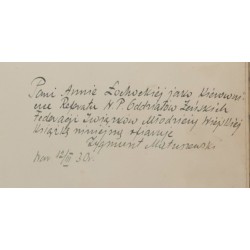 Pani Annie Żochockiej jako Kierowni-
czce Referatu N.P. Oddziałów Żeńskich
Federacji Związków Młodzieży Wiejskiej
książkę niniejszą ofiaruje
Zygmunt Matuszewski
12/III 30r.